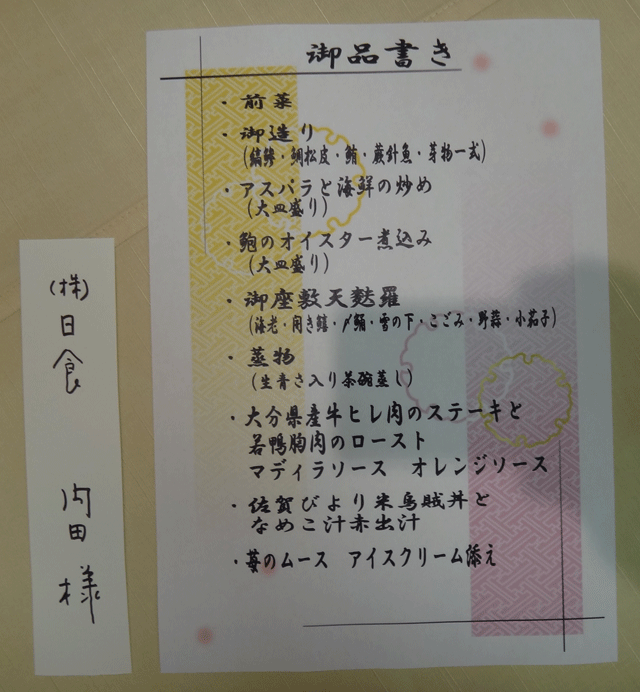 御品書き
・前菜
・御造り
(鎬鯵・鯛松皮・鮪・蕨針魚・芽物一式)
・アスパラと海鮮の炒め
(大皿盛り)
・鮑のオイスター煮込み
(大皿盛り)
・御座敷天麩羅
(海老・開き鱚・〆鯛・雪の下・こごみ・野蒜・小茄子)
・蒸物
(生青さ入り茶碗蒸し)
・大分県産牛ヒレ肉のステーキと
若鴨胸肉のロースト
マディラソース オレンジソース
・佐賀びより米烏賊丼と
なめこ汁赤出汁
・苺のムース アイスクリーム添え
(株)日食 内田様